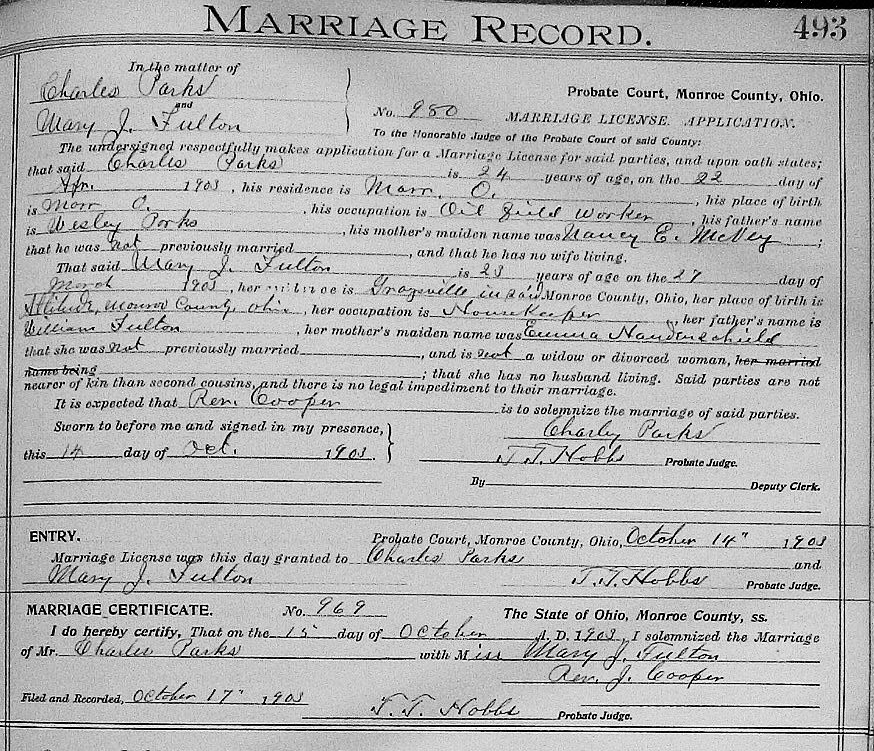 MARRIAGE RECORD. 493
In the matter of
Charles Parks
and
Mary J. Fulton
Probate Court, Monroe County, Ohio.
No. 980 MARRIAGE LICENSE. APPLICATION.
To the Honorable Judge of the Probate Court of said County:
The undersigned respectfully makes application for a Marriage License for said parties, and upon oath states;
that said Charles Parks is 24 years of age, on the 22 day of
Apr. 1903, his residence is Monr. O. , his place of birth
is Monr O. , his occupation is Oil field worker , his father's name
is Wesley Parks , his mother's maiden name was Nancy E. McVey ;
that he was not previously married , and that he has no wife living.
That said Mary J. Fulton is 23 years of age on the 27 day of
March 1903, her residence is Graysville in said Monroe County, Ohio, her place of birth is
Altitude, Monroe County, Ohio , her occupation is Housekeeper , her father's name is
William Fulton , her mother's maiden name was Emma Handerschield
that she was not previously married , and is not a widow or divorced woman, her married
name being ; that she has no husband living. Said parties are not
nearer of kin than second cousins, and there is no legal impediment to their marriage.
It is expected that Rev. Cooper is to solemnize the marriage of said parties.
Sworn to before me and signed in my presence, Charley Parks
this 14 day of Oct. 1903. T. T. Hobbs Probate Judge.
By Deputy Clerk.
ENTRY. Probate Court, Monroe County, Ohio, October 14" 1903
Marriage License was this day granted to Charles Parks and
Mary J. Fulton T. T. Hobbs Probate Judge.
MARRIAGE CERTIFICATE. No. 969 The State of Ohio, Monroe County, ss.
I do hereby certify, That on the 15 day of October A. D. 1903, I solemnized the Marriage
of Mr. Charles Parks with Miss Mary J. Fulton
Rev. J. Cooper
Filed and Recorded, October 17" 1903 T. T. Hobbs Probate Judge.